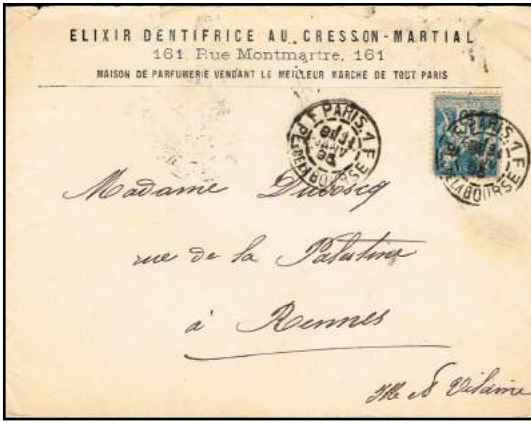 ELIXIR DENTIFRICE AU CRESSON-MARTIAL
161, Rue Montmartre, 161
MAISON DE PARFUMERIE VENDANT LE MEILLEUR MARCHÉ DE TOUT PARIS
PARIS. 1
BOURSE
PARIS. 1
BOURSE
Madame Duboscq
rue de la Palestine
à Rennes
Ille & Vilaine